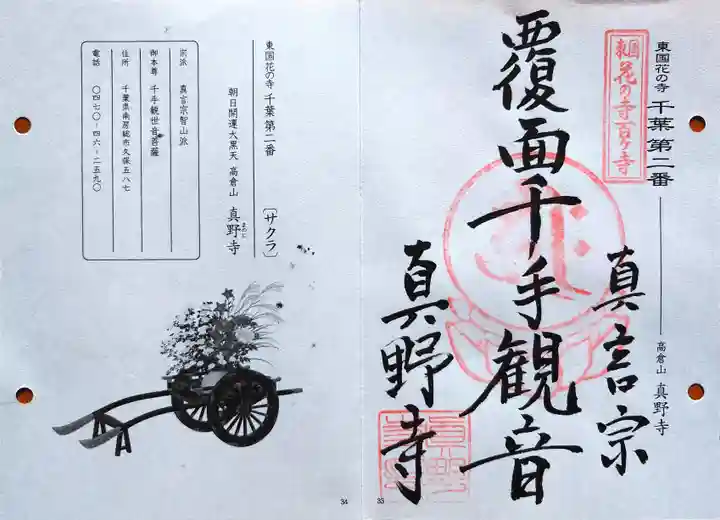 東国花の寺 千葉第二番 高倉山 真野寺
東国
花の寺百ヶ寺
真言宗
覆面千手観音
真野寺
33
東国花の寺 千葉第二番
〔サクラ〕
朝日開運大黒天 高倉山 真野寺
まのじ
宗派 真言宗智山派
御本尊 千手観世音菩薩
住所 千葉県南房総市久保五八七
電話 〇四七〇-四六-二五九〇
34